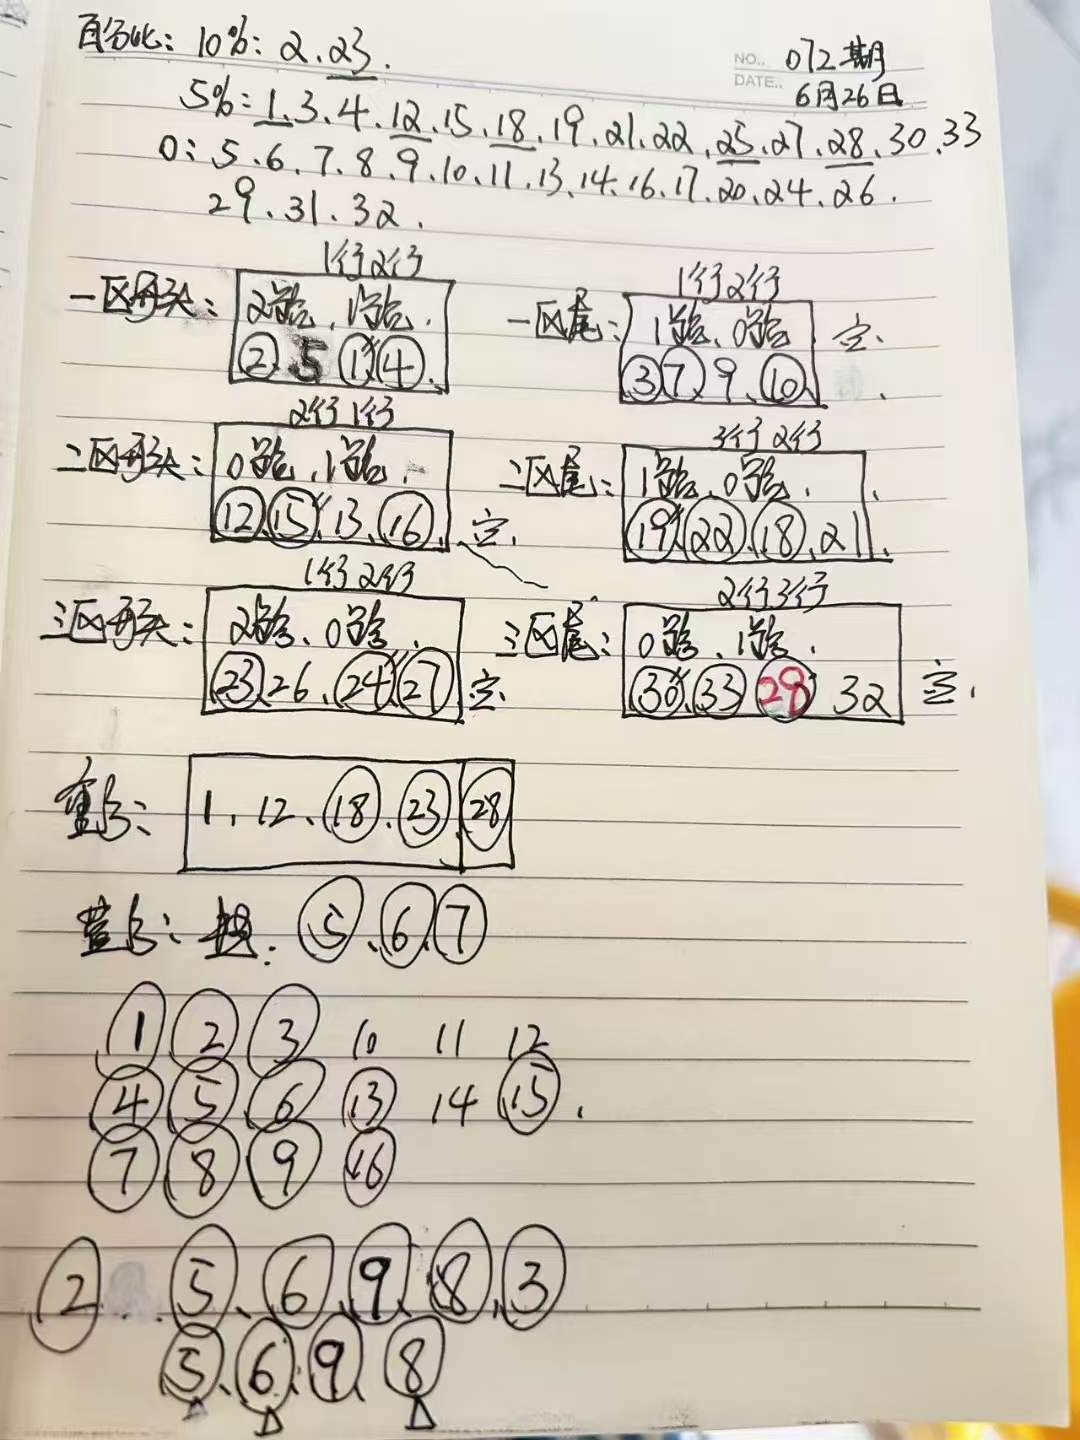 百分比: 10%: 2、23.
NO.. 072期
DATE.. 6月26日
5%: 1、3、4、12、15、18、19、21、22、25、27、28、30、33
0: 5、6、7、8、9、10、11、13、14、16、17、20、24、26.
29、31、32.
1行2行
一区头: 2路、1路.
2 5 1 4
1行2行
一区尾: 1路、0路 空.
3 7 9 10
2行1行
二区头: 0路、1路.
12 15 13、16、空.
3行2行
二区尾: 1路、0路.
19 22 18、21
1行2行
三区头: 2路、0路.
23 26、24 27 空
2行3行
三区尾: 0路、1路.
30 33 29 32 空.
重号: 1、12、18、23 28
蓝号: 5、6 7
1 2 3 10 11 12
4 5 6 13 14 15.
7 8 9 16
2 5、6 9 8、3
5、6、9 8